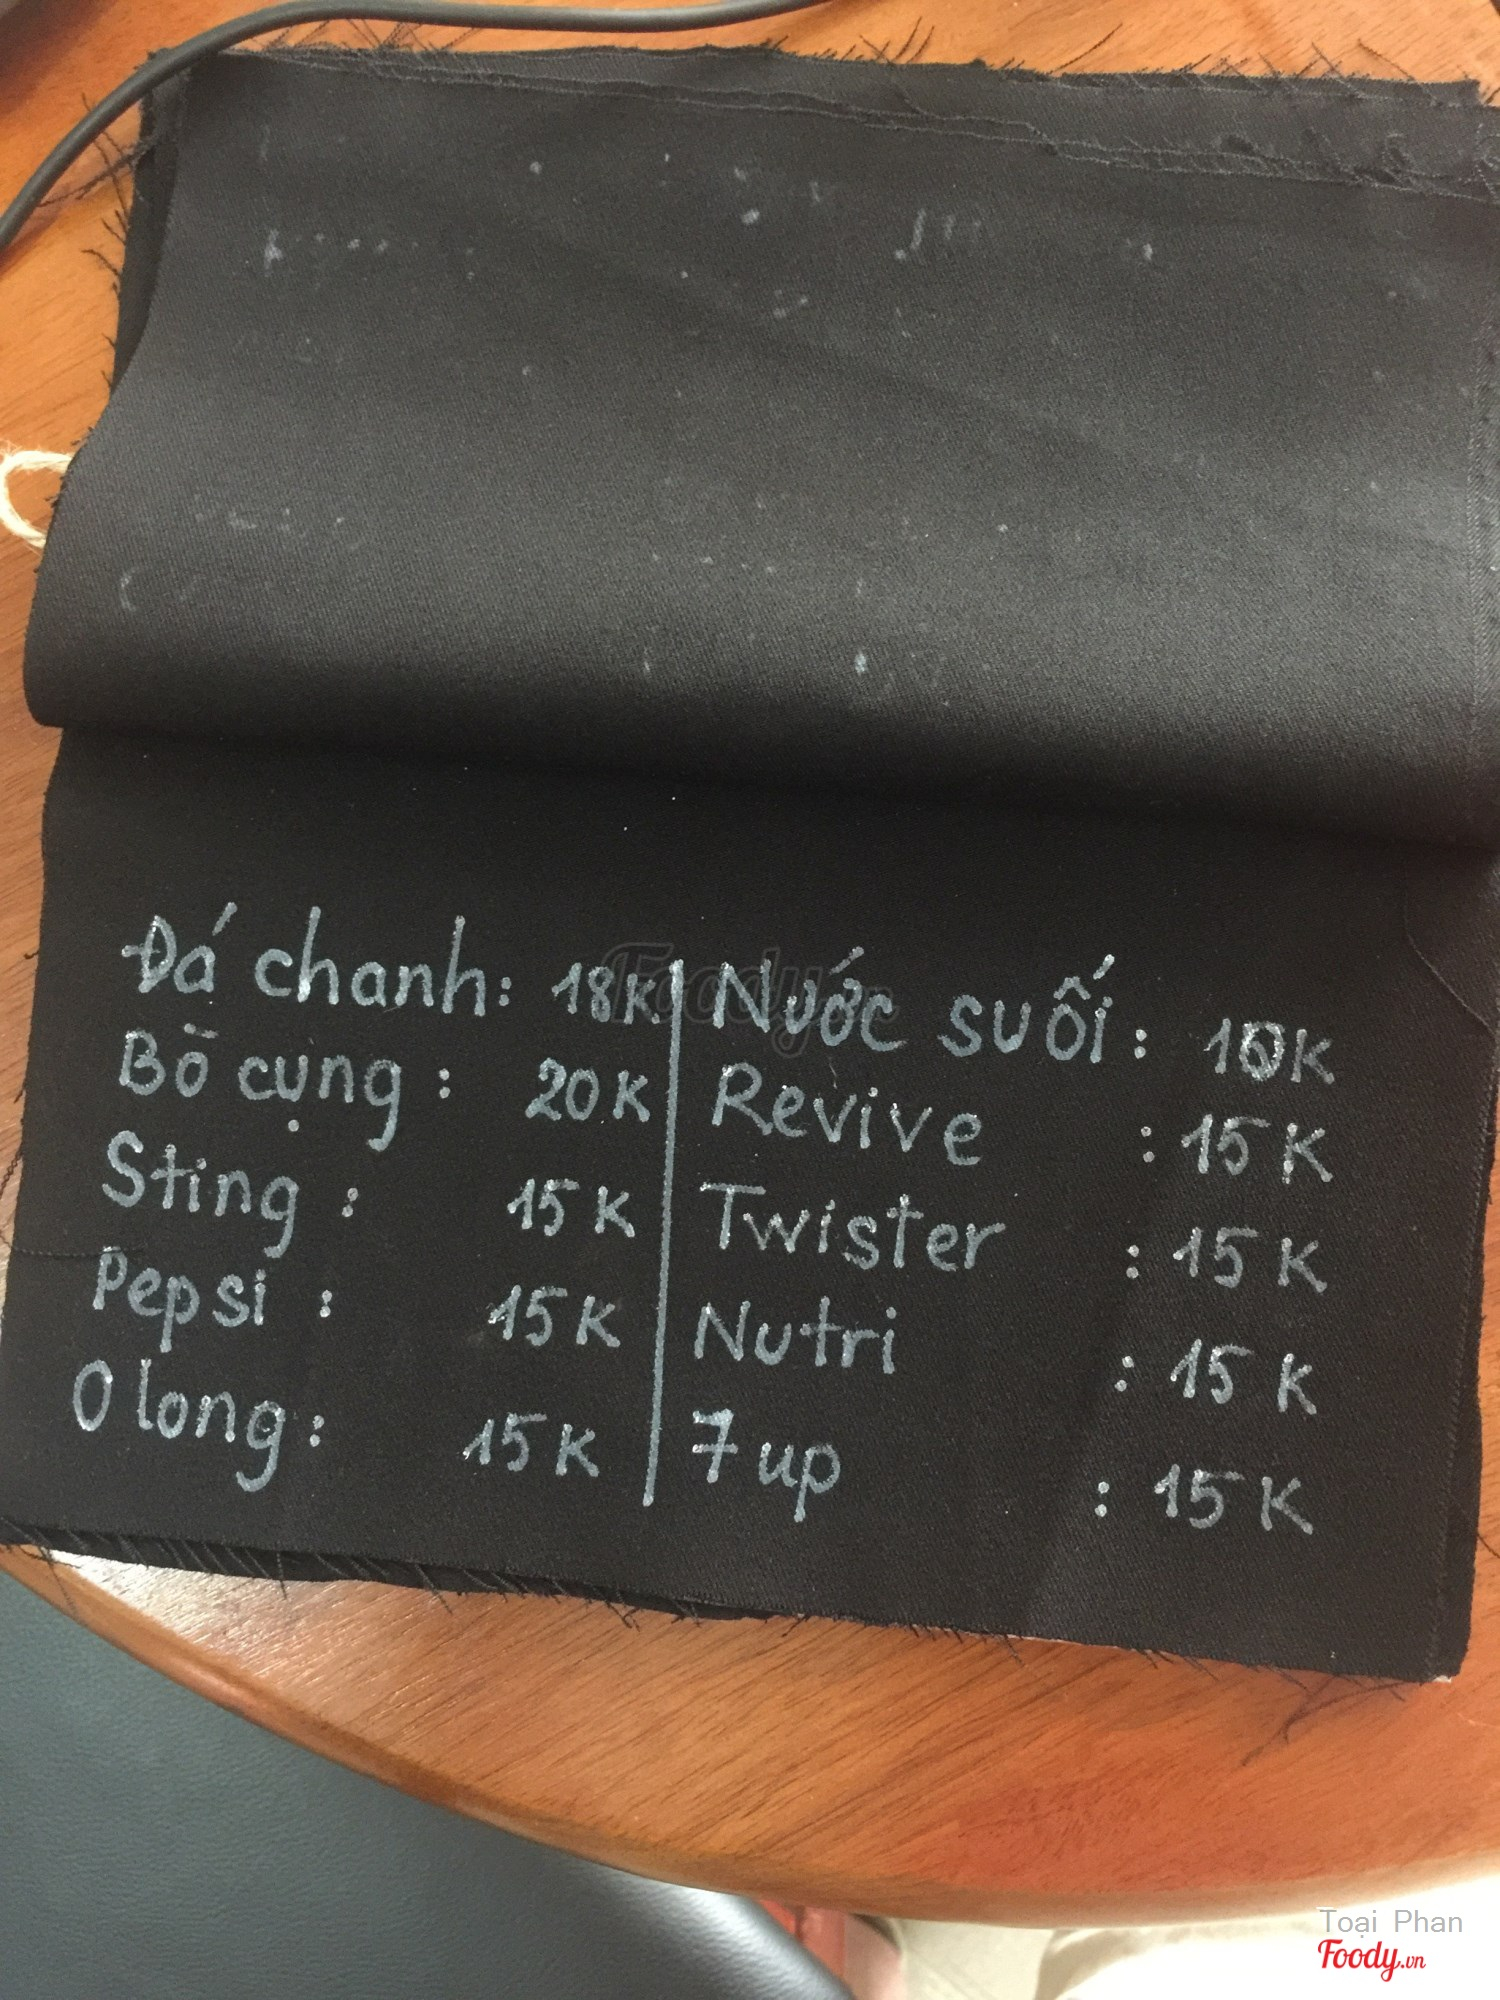 Đá chanh: 18K
Bò cụng: 20K
Sting: 15K
Pepsi: 15K
O long: 15K
Nước suối: 10K
Revive: 15K
Twister: 15K
Nutri: 15K
7up: 15K
Foody.vn
Toại Phan
Foody.vn